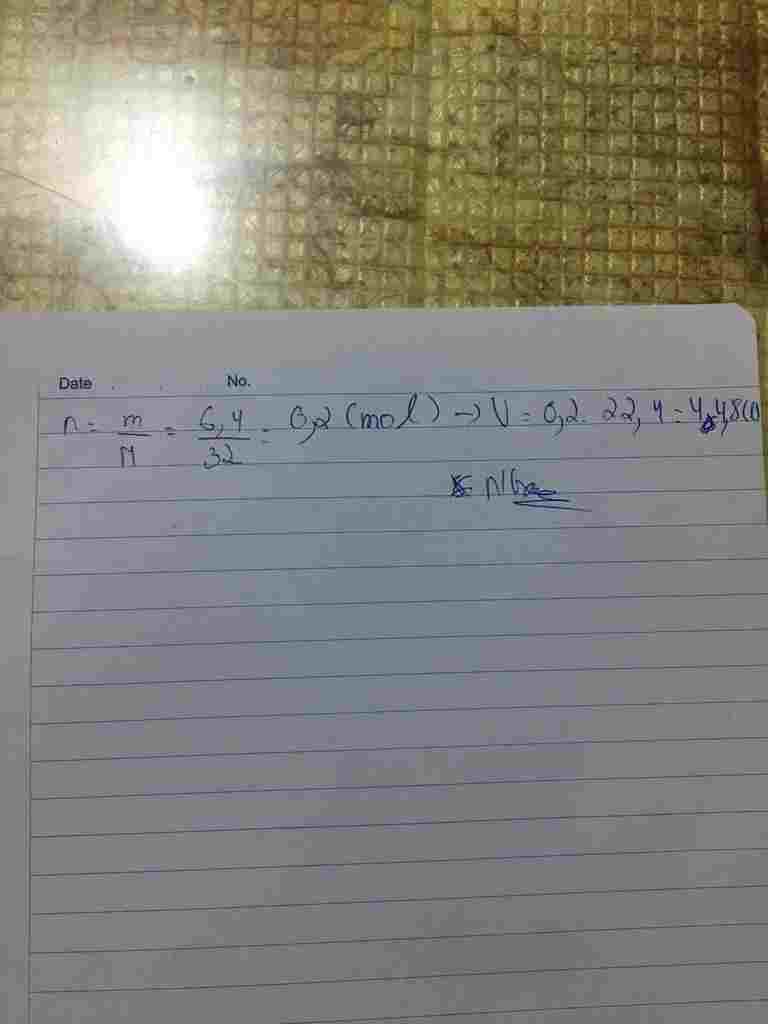 Date No.
n = m/M = 6,4/32 = 0,2 (mol) → V = 0,2. 22,4 = 4,48(l)